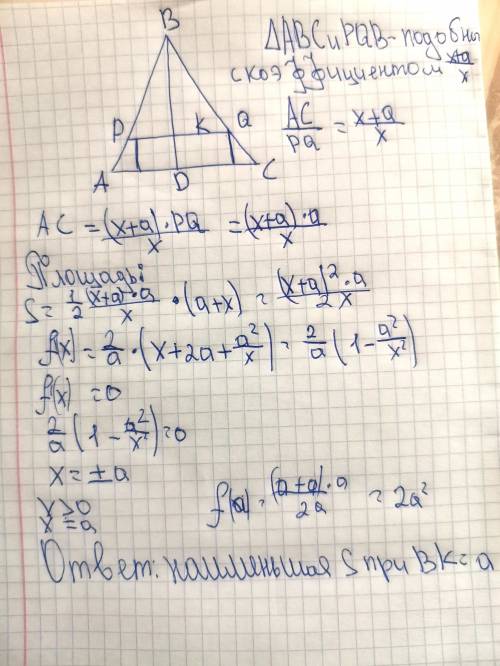 B
ΔABC и PQB - подобны
с коэффициентом (x+a)/x
P K Q
AC/PQ = (x+a)/x
A D C
AC = (x+a)·PQ/x = (x+a)·a/x
Площадь:
S = 1/2 (x+a)·a/x · (a+x) = (x+a)²·a/2x
f(x) = 2/a · (x+2a+a²/x) = 2/a (1 - a²/x²)
f(x) = 0
2/a (1 - a²/x²) = 0
x = ±a
x>0
x=a
f(a) = (a+a)·a/2a = 2a²
Ответ: наименьшая S при BK=a